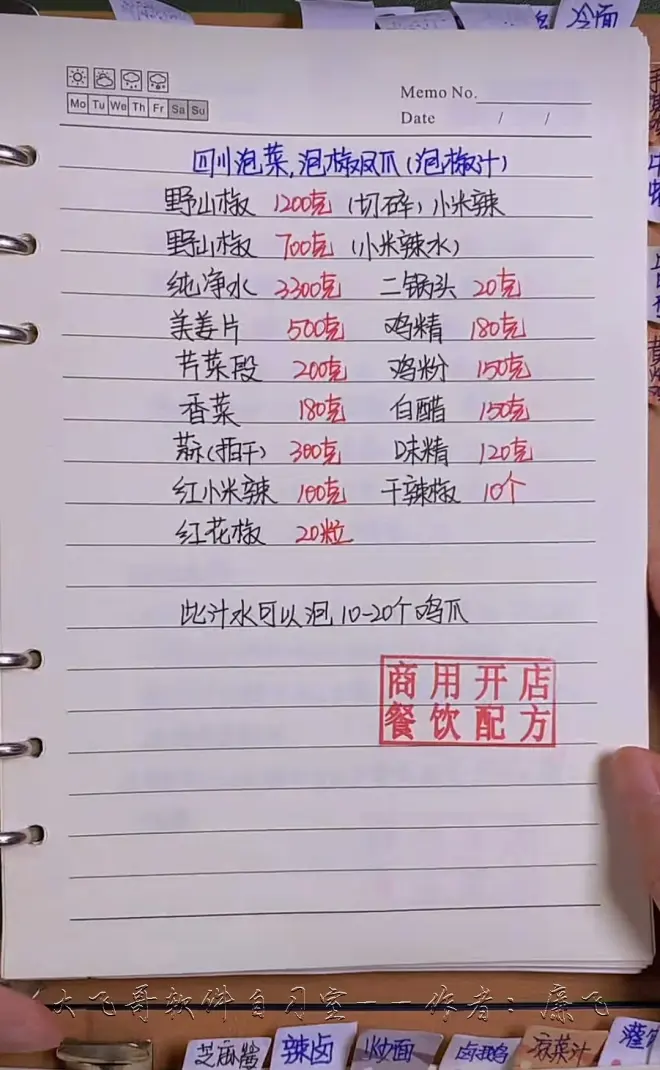 冷面
Mo Tu We Th Fr Sa Su
Memo No.
Date / /
四川泡菜,泡椒凤爪(泡椒汁)
野山椒 1200克 (切碎) 小米辣
野山椒 700克 (小米辣水)
纯净水 3300克 二锅头 20克
美姜片 500克 鸡精 180克
芹菜段 200克 鸡粉 150克
香菜 180克 白醋 150克
蒜(拍干) 300克 味精 120克
红小米辣 100克 干辣椒 10个
红花椒 20粒
此汁水可以泡10-20个鸡爪
商用开店
餐饮配方
大飞哥软件自习室——作者:廉飞
芝麻酱 辣卤 炒面 凉菜汁